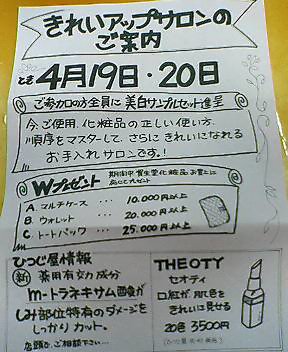 きれいアップサロンの
ご案内
とき 4月19日・20日
ご参加の方全員に 美白サンプルセット進呈
今、ご使用、化粧品の正しい使い方、
順序をマスターして、さらにきれいになれる
お手入れサロンです!
Wプレゼント 期間中 資生堂化粧品お買上に
応じてプレゼント
A. マルチケース ・・・ 10.000円以上
B. ウォレット ・・・ 20.000円以上
C. トートバッグ ・・・ 25.000円以上
ひつじ屋情報
新 薬用有効成分
m-トラネキサム酸が
しみ部位特有のダメージを
しっかりカット。
店頭にて、ご相談下さい…
THEOTY
セオティ
口紅が肌色を
きれいに見せる
20色 3500円